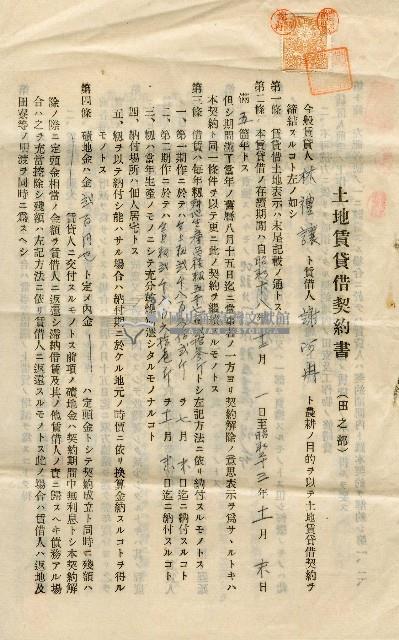 土地賃貸借契約書(田之部)
今般賃貸人林禮讓ト賃借人謝阿ト農耕ノ目的ヲ以テ土地賃貸借契約ヲ
締結スルコト左ノ如シ
第一條 賃貸借土地表示ハ末尾記載ノ通トス
第二條 本賃貸借ノ存續期間ハ自昭和年十二月一日至昭和年十一月末日
滿五箇年トス
但シ期間滿了當年ノ舊曆八月十五日迄ニ當事者ノ一方ヨリ契約解除ノ意思表示ヲ爲サヽルトキハ
本契約ト同一條件ヲ以テ更ニ此ノ契約ヲ繼續スルモノトス
第三條 借賃ハ每年トシ左記方法ニ依リ納付スルモノトス
一、第一期作ニ於テハヲ七月末日迄ニ納付スルコト
二、第二期作ニ於テハヲ十一月末日迄ニ納付スルコト
三、籾ハ當年生產ノモノニシテ充分乾燥シタルモノナルコト
四、納付場所ハ個人居宅トス
五、籾ヲ以テ納付シ能ハサル場合ハ納付期ニ於ケル地元ノ時價ニ依リ換算金納スルコトヲ得ル
モノトス
第四條 磧地金ハ金貳百円也ト定メ內金ハ定頭金トシテ契約成立ト同時ニ殘額ハ
賃貸人ニ交付スルモノトス前項ノ磧地金ハ契約期間中無利息トシ本契約解
除ノ際ニ定頭金相當ノ金額ヲ賃借人ニ返還シ滯納借賃及其ノ他賃借人ノ責ニ歸スヘキ債務アル場
合ハ之ヲ充當控除シ殘額ハ左記方法ニ依リ賃借人ニ返還スルモノトス此ノ場合ハ賃借人ハ返地及
田寮等ノ明渡ヲ同時ニ爲スヘシ
國史館臺灣文獻館